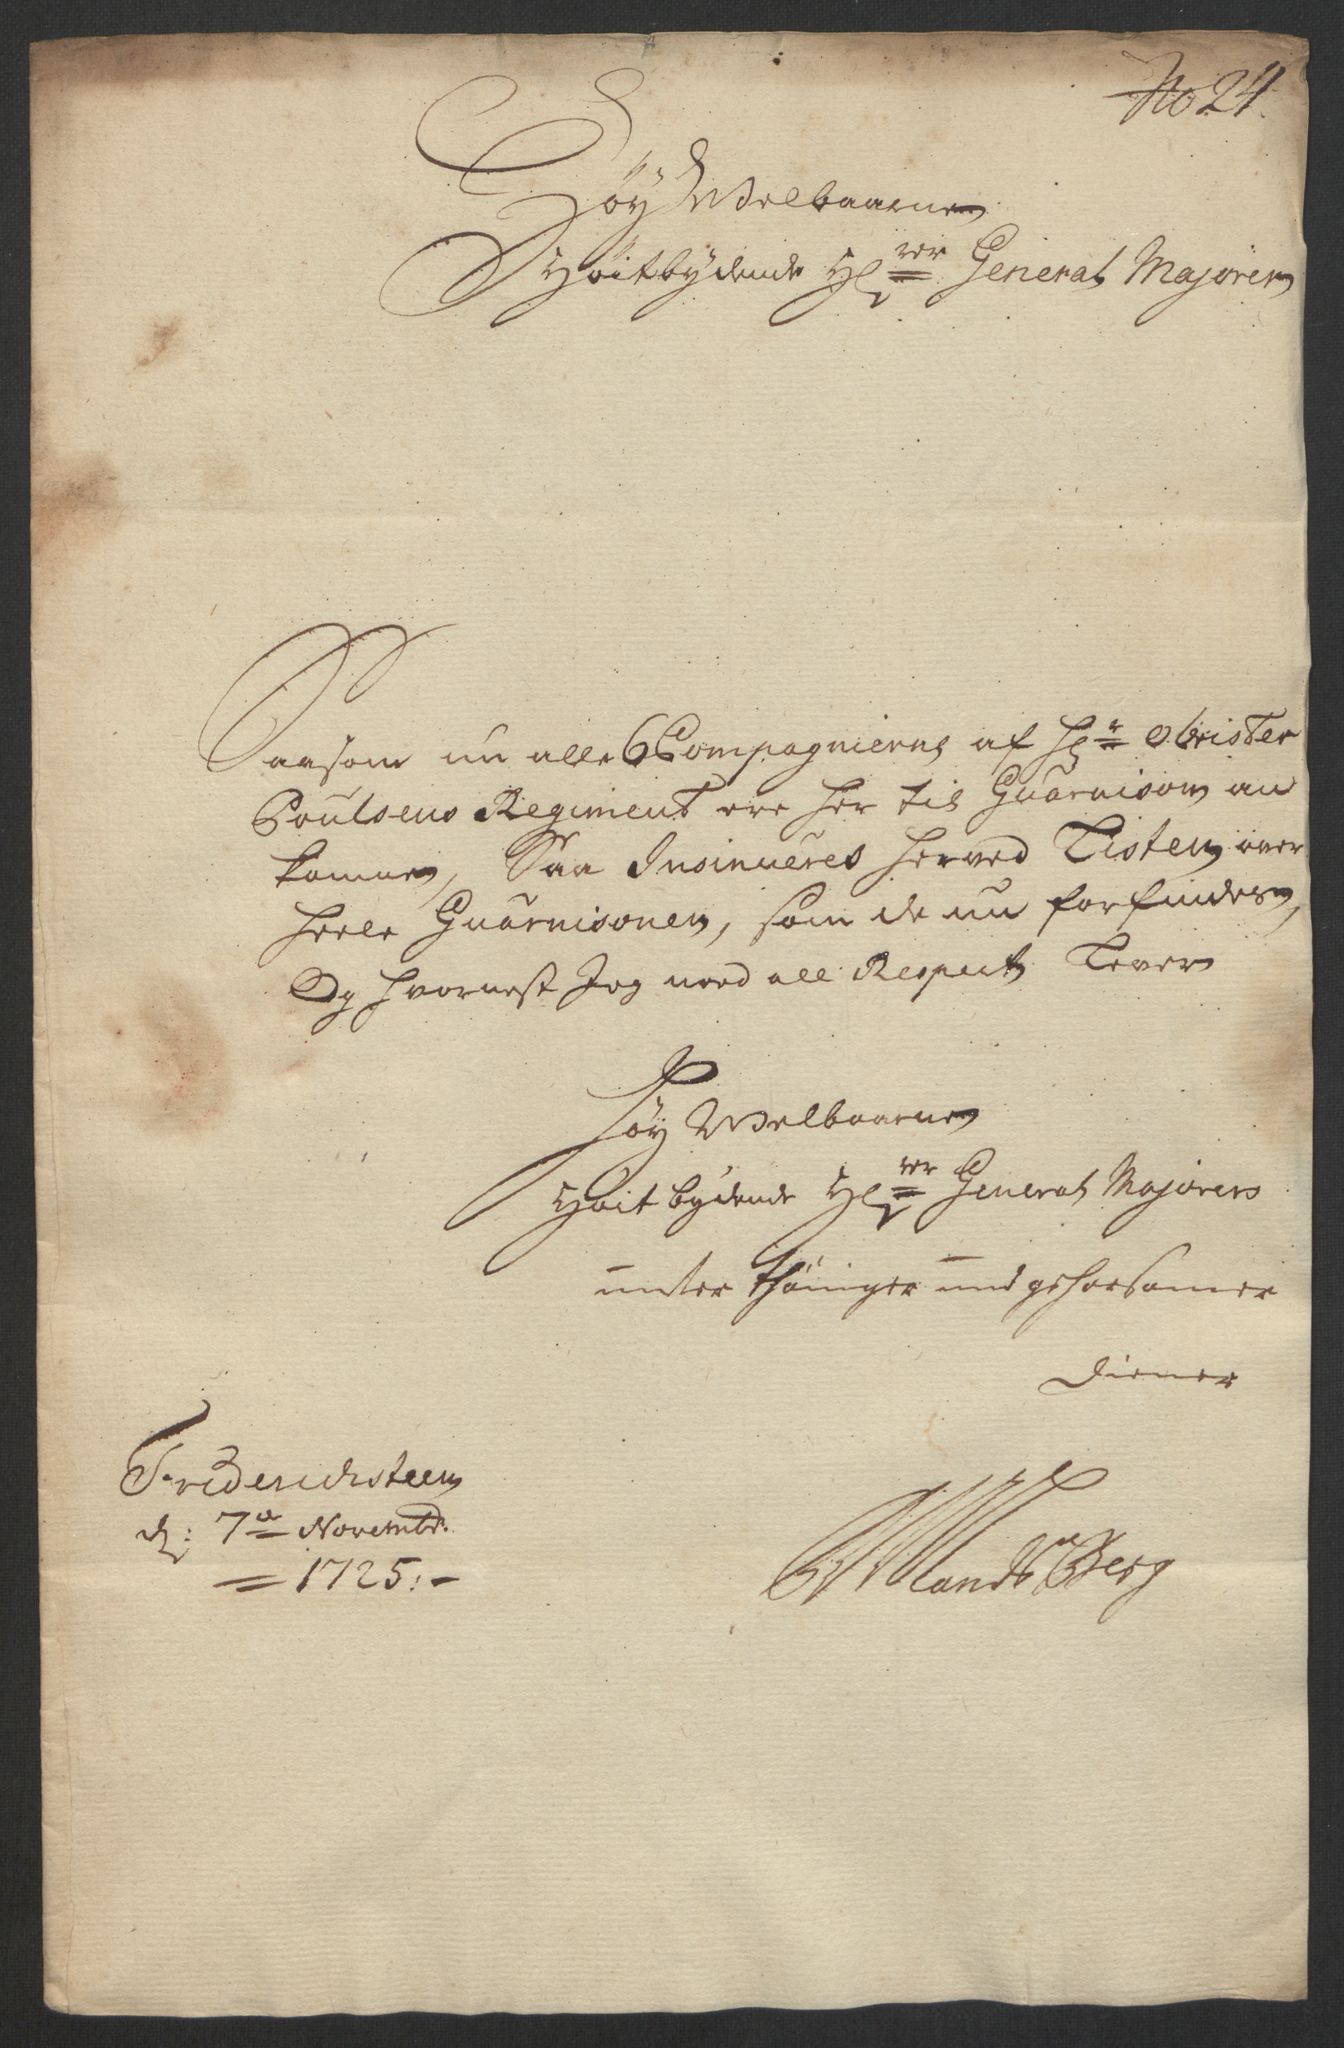 No 24.
Høy Welbaarne
Høitbydende Hr General Majoren
Saasom nu alle 6 Compagnierne af Hr Obrister
Poulsens Regiment ere her til Guarnison an
komne, Saa Insinueres herved Listen over
heele Guarnisonen, som de nu forfindes,
Og hvornest Jeg med all Respect Lever
Høy Welbaarne
Høitbydende Hr General Majorers
unter thäniger und gehorsamer
Diener
Friderichsteen
d: 7de Novembr.
1725:
Landsberg